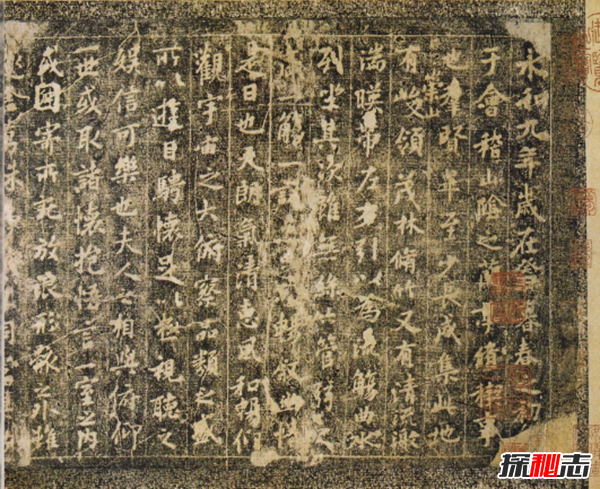 永和九年歲在癸暮春之初
于會稽山陰之蘭脩禊事
也羣賢畢至少長咸集此地
有崇山
峻領茂林脩竹又有清流激
湍暎帶左右引以爲流觴曲水
列坐其次雖無絲竹管弦之
一觴一詠叙幽情
是日也天朗氣清惠風和暢仰
觀宇宙之大俯察品類之盛
所以遊目騁懷足以極視聽之
娛信可樂也夫人之相與俯仰
一世或取諸懷抱悟言一室之內
或因寄所託放浪形骸之外雖
探秘志